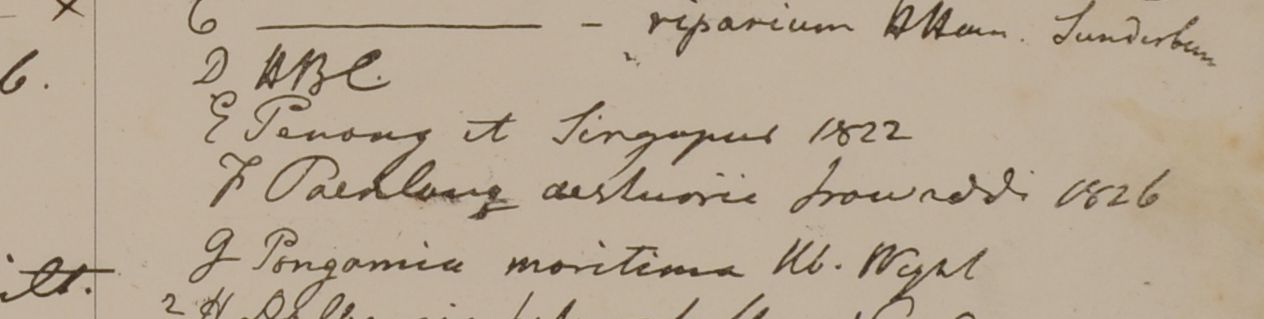 x C ——— - riparium HHam. Sunderbun
6. D HBC.
E Penang et Singapur 1822
F Paenlang aestuarii Irawaddi 1826
G Pongamia maritima Hb. Wight
2 H